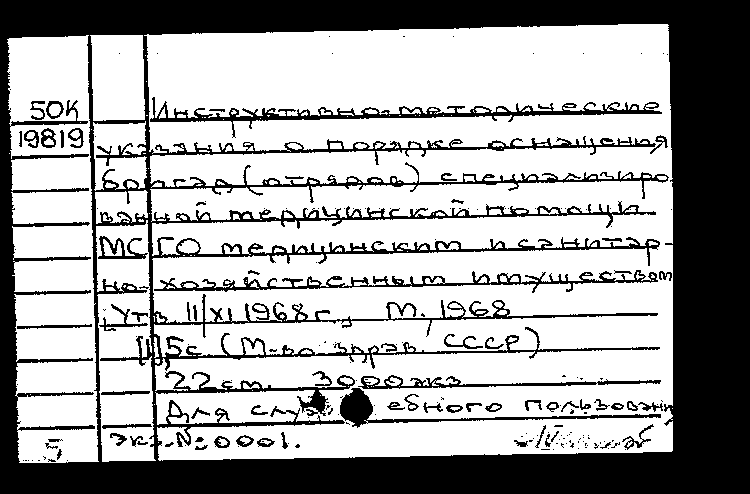 50К Инструктивно-методические
19819 указания о порядке оснащения
бригад (отрядов) специализиро
ванной медицинской помощи
МСГО медицинским и санитар-
но-хозяйственным имуществом
Утв 11/XI 1968г., М., 1968
[1], 5с (М-во здрав. СССР)
22 см. 3000экз
Для служебного пользовани
5 экз. № 0001.